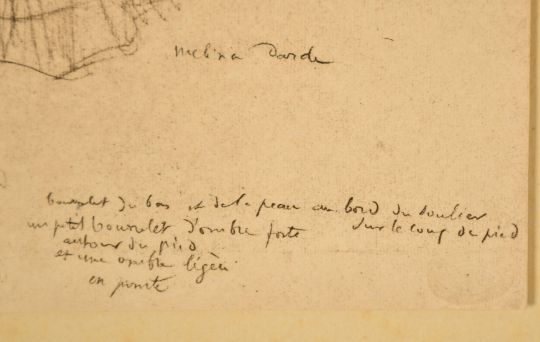 Melina Darde
bourrelet du bas et de la peau au bord du soulier
sur le coup de pied
un ptit bourrelet d'ombre forte
autour du pied
et une ombre légère
en pointe